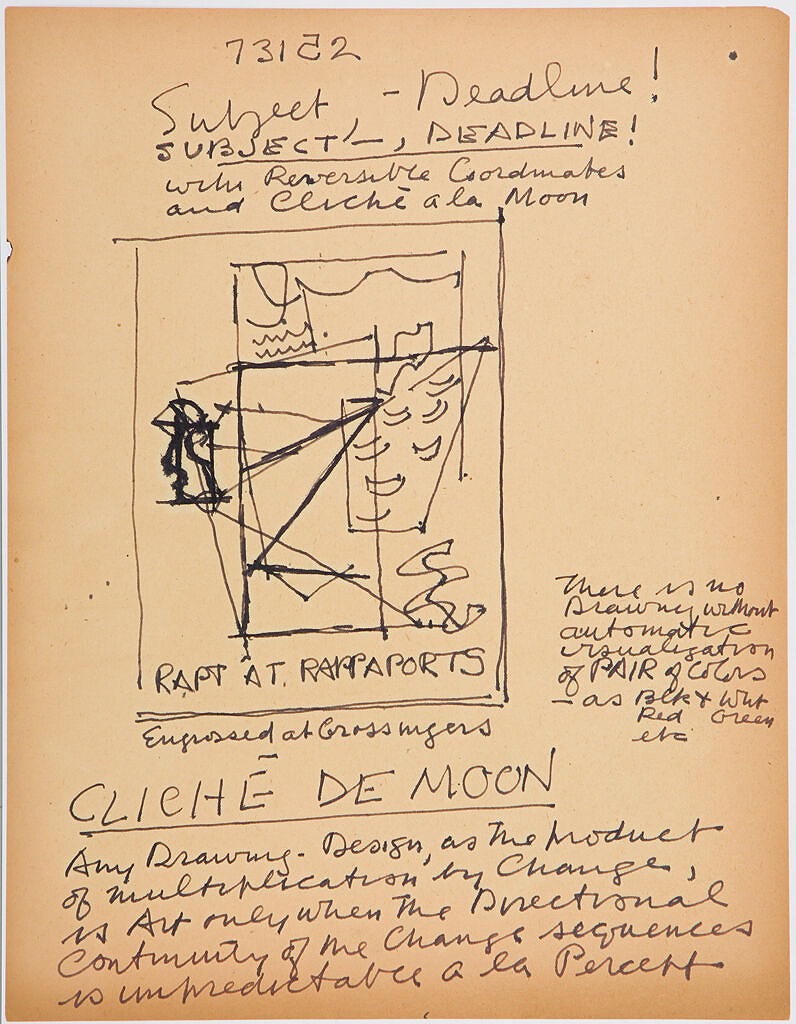 73122
Subject, - Deadline!
SUBJECT, -, DEADLINE!
with Reversible Coordinates
and Cliché a la Moon
RAPT AT RAPPAPORTS
Engrossed at Grossingers
There is no
Drawing without
automatic
visualization
of PAIR of Colors
- as Blk & Wht
Red Green
etc
CLICHĒ DE MOON
Any Drawing - Design, as the product
of multiplication by Change,
is Art only when the Directional
Continuity of the Change sequences
is unpredictable a la Percept